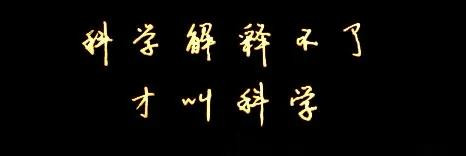 科学解释不了
才叫科学